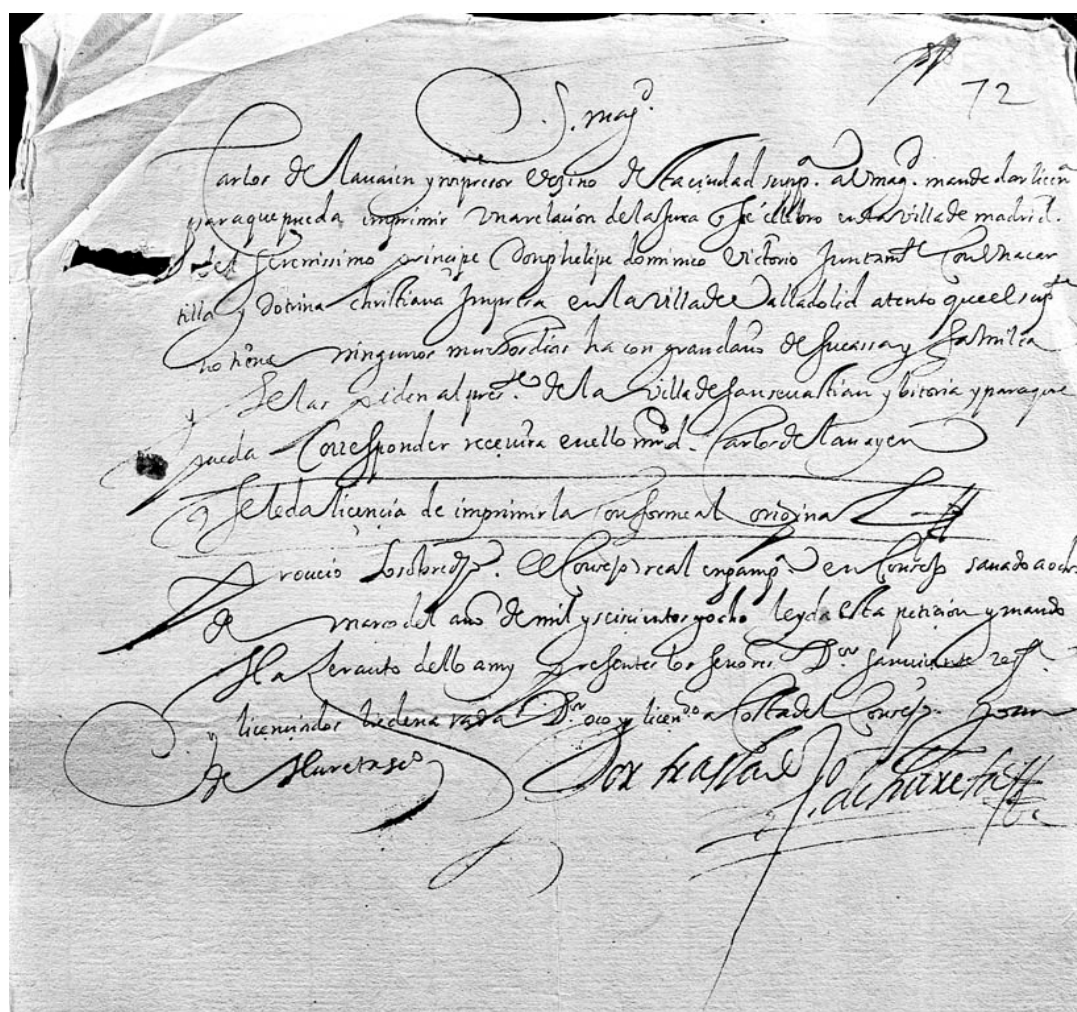 72
S. mag.d
Carlos de Lauaien ynpresor vezino desta ciudad supp.a a V. mag.d mande dar licen.a
para que pueda imprimir vna relacion de la Jura q̃ se celebro en la villa de madrid.
del serenissimo principe Don phelipe dominico victorio Juntam.te con vna car
tilla y dotrina christiana Impresa en la villa de Valladolid atento que el sup.te
no tiene ningunos muchos dias ha con gran daño de su cassa y familia
y se las piden al pres.te de la villa de san seuastian y bitoria y para que
pueda corresponder receuira en ello mrd. Carlos de Lauayen
Se le da licencia de imprimirla conforme al original
Proueio lo sobred.ho el Consejo real en pamp.a en Consejo sauado a ocho
de março del año de mil y seicientos y ocho leyda esta peticion y mando
hazer auto dello a my presentes los señores D.or san uicente reg.te
licenciados liedena rada D.or oco y licen.do a Costa del Consejo. Joan
de Hureta s.rio
Por traslado J.o de hureta s.rio